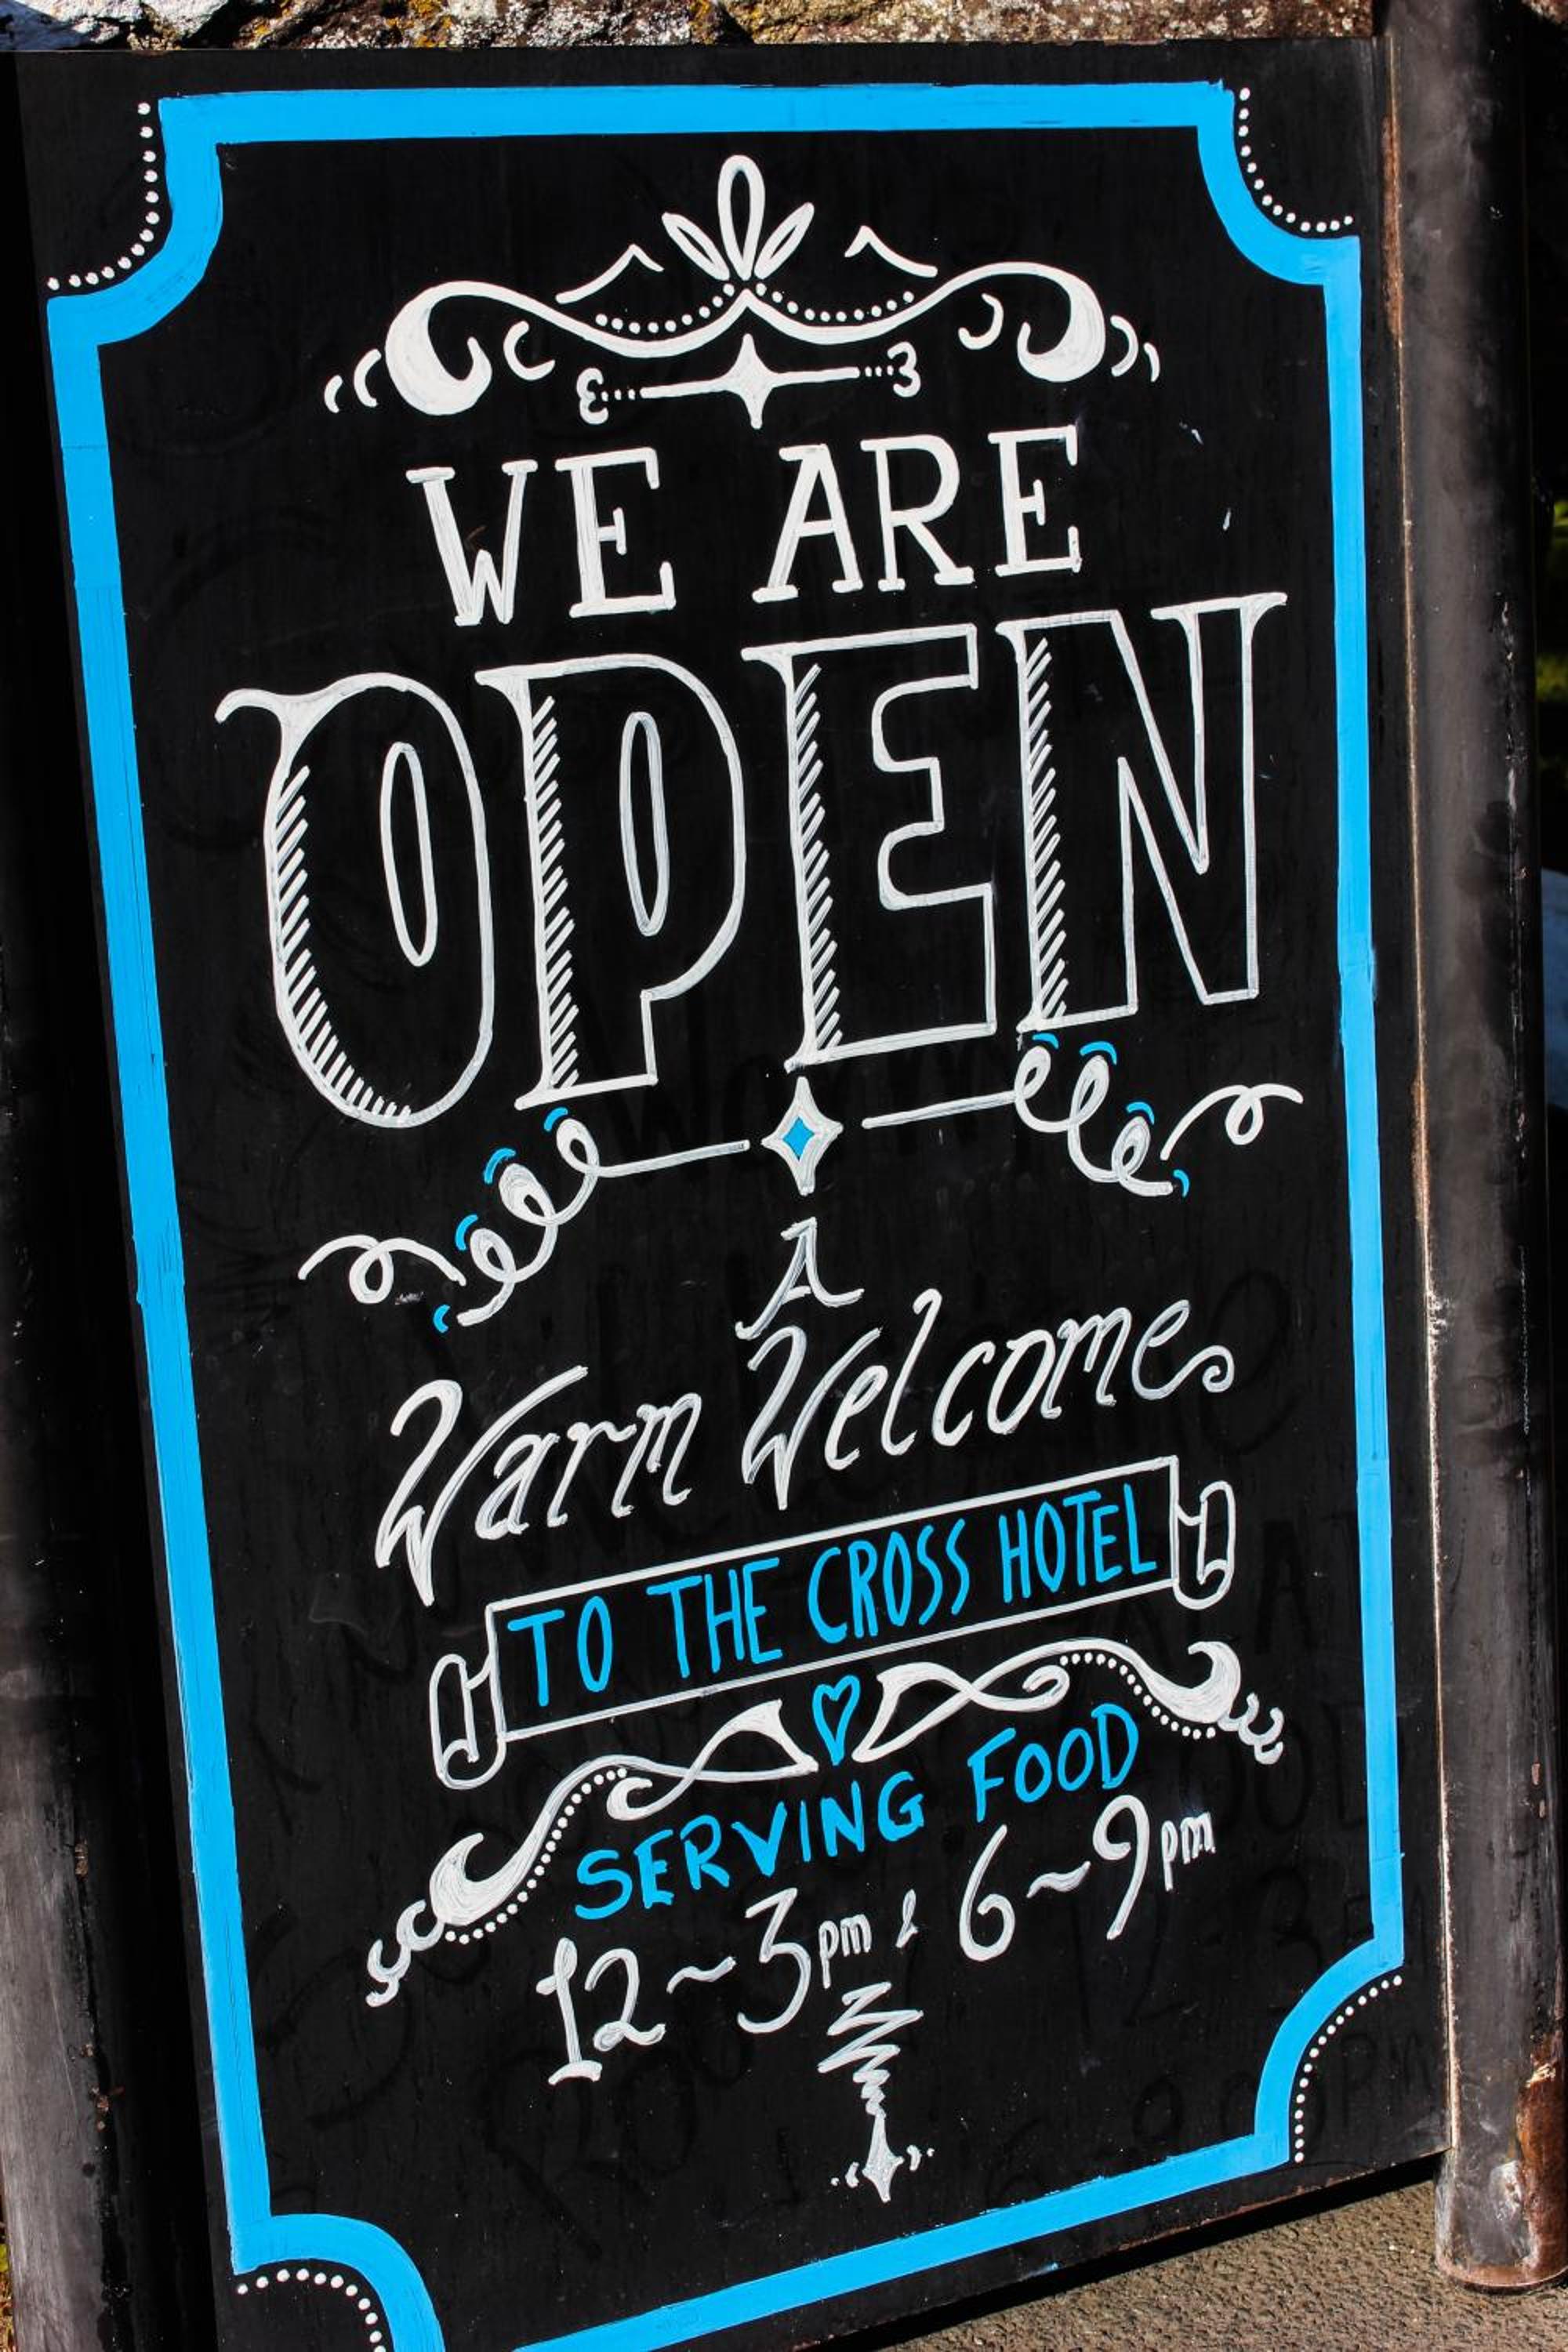 WE ARE
OPEN
A
Warm Welcome
TO THE CROSS HOTEL
SERVING FOOD
12~3pm & 6~9pm